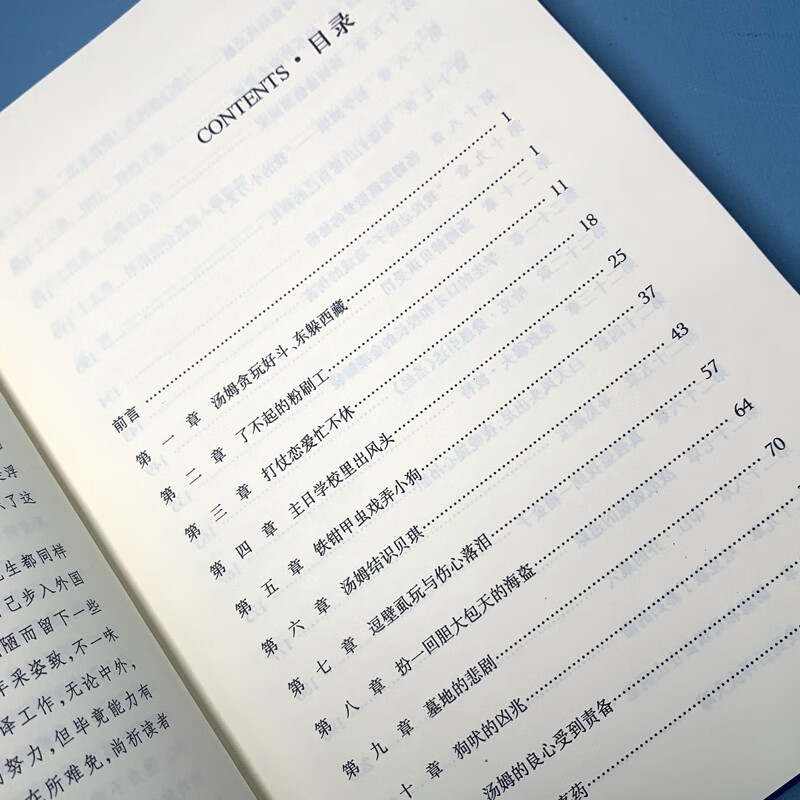 浮
了这
生都同样
己步入外国
陋而留下一些
采姿致，不一味
译工作，无论中外，
努力，但毕竟能力有
在所难免，尚祈读者
CONTENTS·目录
前言 1
第一章 汤姆贪玩好斗、东躲西藏 1
第二章 了不起的粉刷工 11
第三章 打仗恋爱忙不休 18
第四章 主日学校里出风头 25
第五章 铁钳甲虫戏弄小狗 37
第六章 汤姆结识贝琪 43
第七章 逗壁虱玩与伤心落泪 57
第八章 扮一回胆大包天的海盗 64
第九章 墓地的悲剧 70
十章 狗吠的凶兆
汤姆的良心受到责备
药